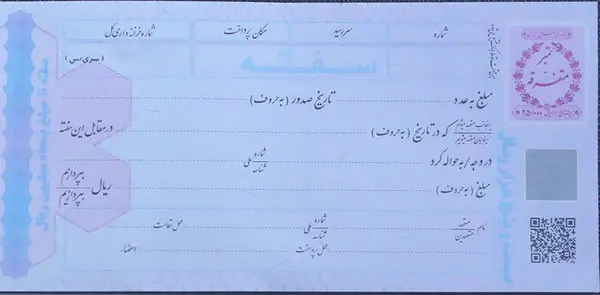 شماره سررسید مکان پرداخت شماره خزانه داری کل
(سری/س)
سفته
تمبر
متفرقه
۲۵/۰۰۰
مبلغ به عدد تاریخ صدور (به حروف)
اینجانب متعهد میشوم
اینجانبان متعهد میشویم
که در تاریخ (به حروف) در مقابل این سفته
در وجه / به حواله کرد شماره ملی
شناسه
مبلغ (به حروف) ریال بپردازم
بپردازیم
نام متعهد شماره ملی محل اقامت
متعهدین شناسه
محل پرداخت امضاء